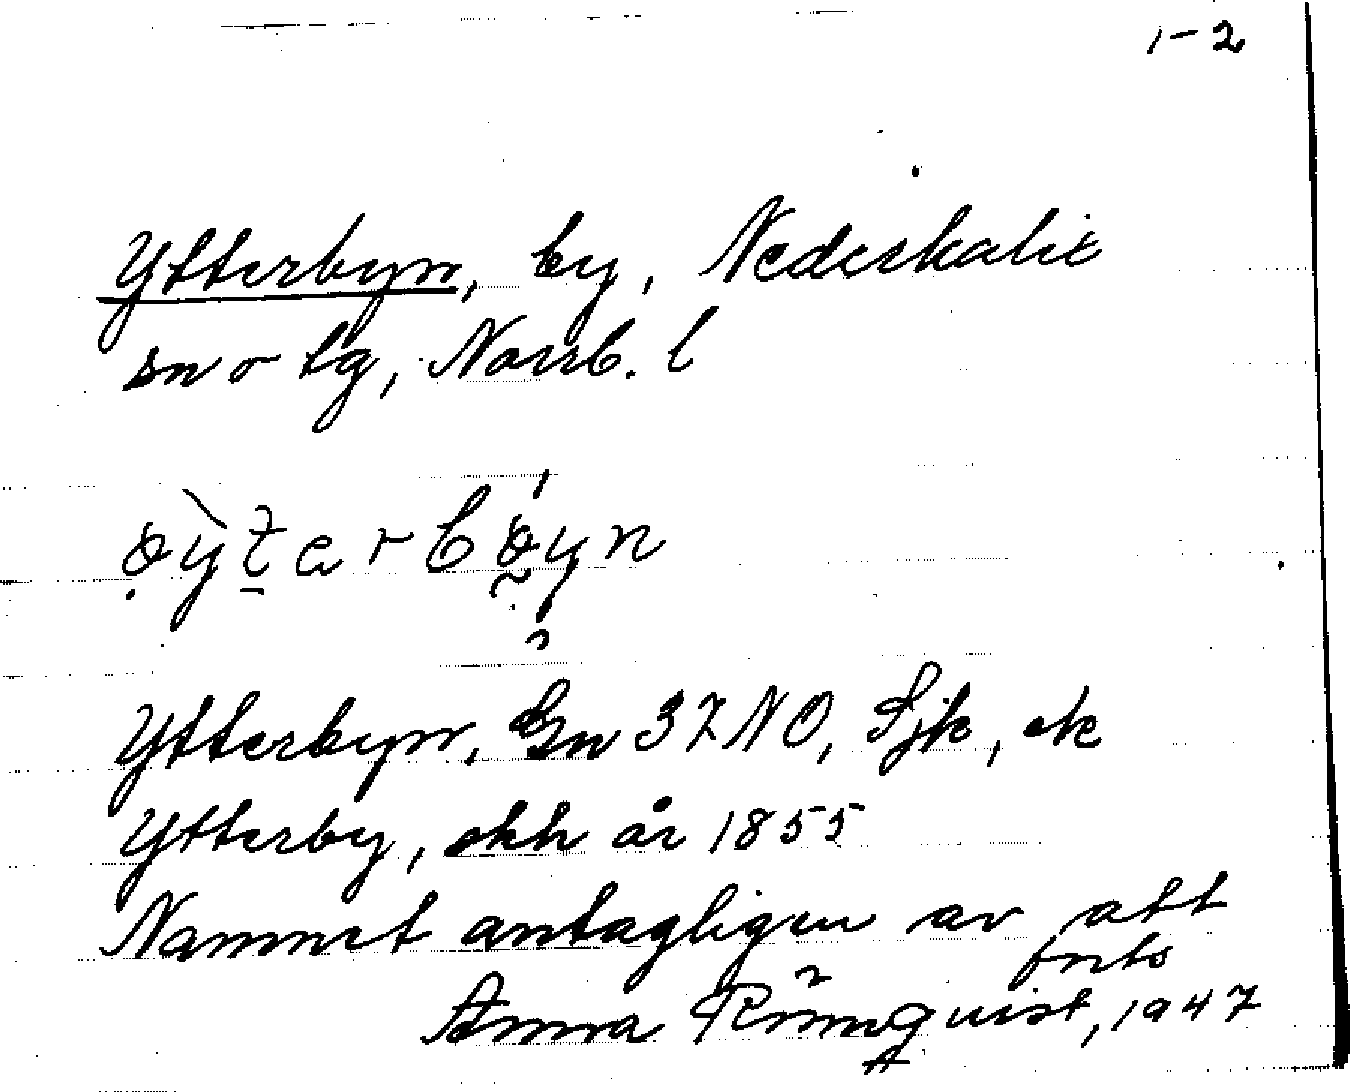 1-2
Ytterbyn, by, Nederkalix
sn o tg, Norrb. l
Ytterbyn, Gn 37 NO, Sjk, ek
Ytterby, skh år 1855
Namnet antagligen av att
forts
Anna Rönnquist, 1947